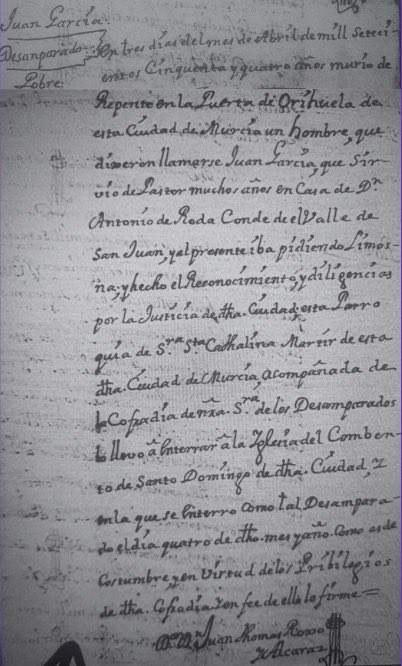 Juan Garcia.
Desanparado
Pobre
En tres dias del mes de Abril de mill Seteci-
entos Cinquenta y quatro años murio de
Repente en la Puerta de Orihuela de
esta Ciudad de Murcia un hombre que
dixeron llamarse Juan Garcia, que Sir-
vio de Pastor muchos años en Casa de Dn
Antonio de Roda Conde de el Valle de
San Juan, y al presente iba pidiendo Limos-
na: y hecho el Reconocimiento, y diligencias
por la Justicia de dha. Ciudad; esta Parro
quia de Sra Sta Cathalina Martir de esta
dha. Ciudad de Murcia, acompañada de
la Cofradia de nra. Sra. de los Desamparados
lo llevo â Enterrar â la Iglesia del Comben-
to de Santo Domingo de dha. Ciudad, Y
en la que se Enterro como tal Desampara-
do el dia quatro de dho. mes y año. Como es de
Costumbre y en Virtud de los Pribilegios
de dha. Cofradia. Y en fee de ello lo firme =
Juan Thomas Roxo
Y Alcaraz